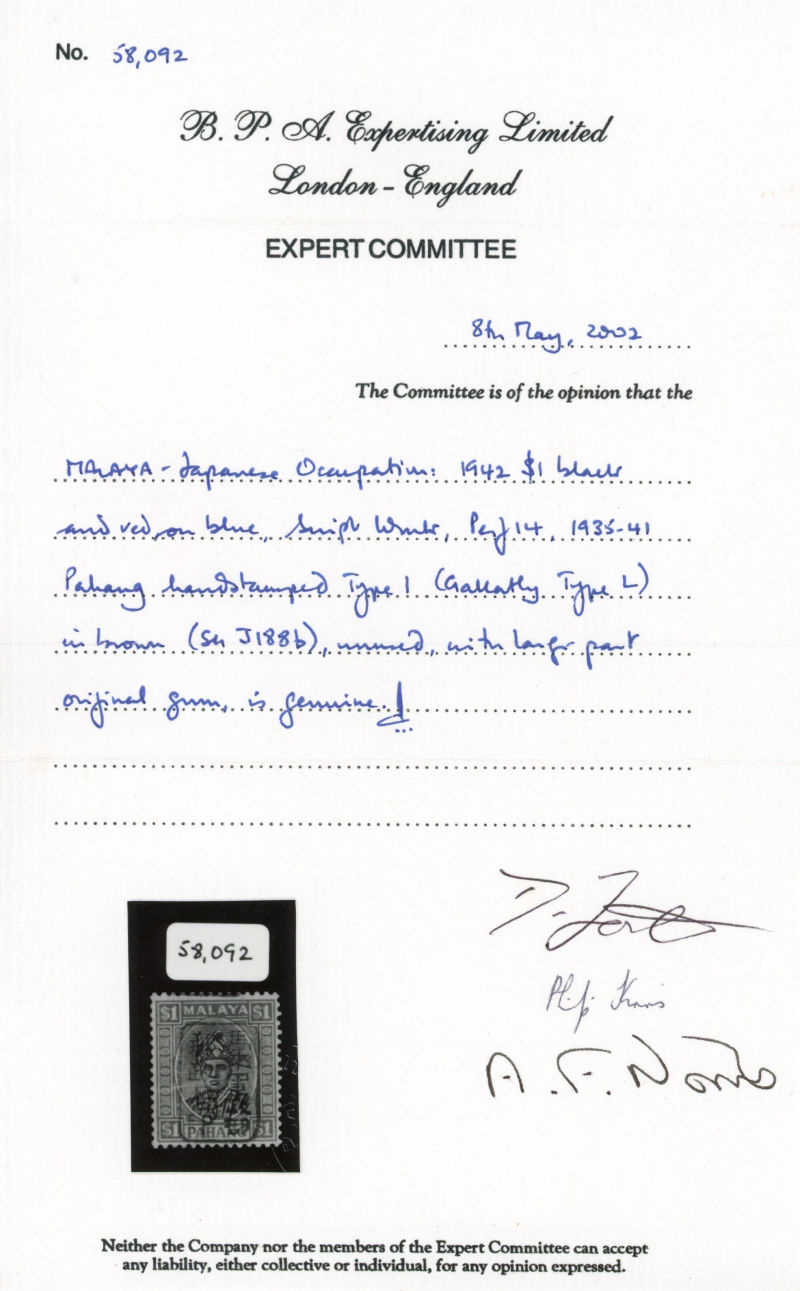 No. 58,092
B. P. A. Expertising Limited
London - England
EXPERT COMMITTEE
8th May, 2002
The Committee is of the opinion that the
MALAYA - Japanese Occupation: 1942 $1 black
and red on blue, Script Wmk, Perf 14, 1935-41
Pahang handstamped Type 1 (Gallatly Type L)
in brown (SG J188b), unused, with large part
original gum, is genuine.
58,092
$1 MALAYA $1
$1 PAHANG $1
A. F. Norris
Neither the Company nor the members of the Expert Committee can accept
any liability, either collective or individual, for any opinion expressed.